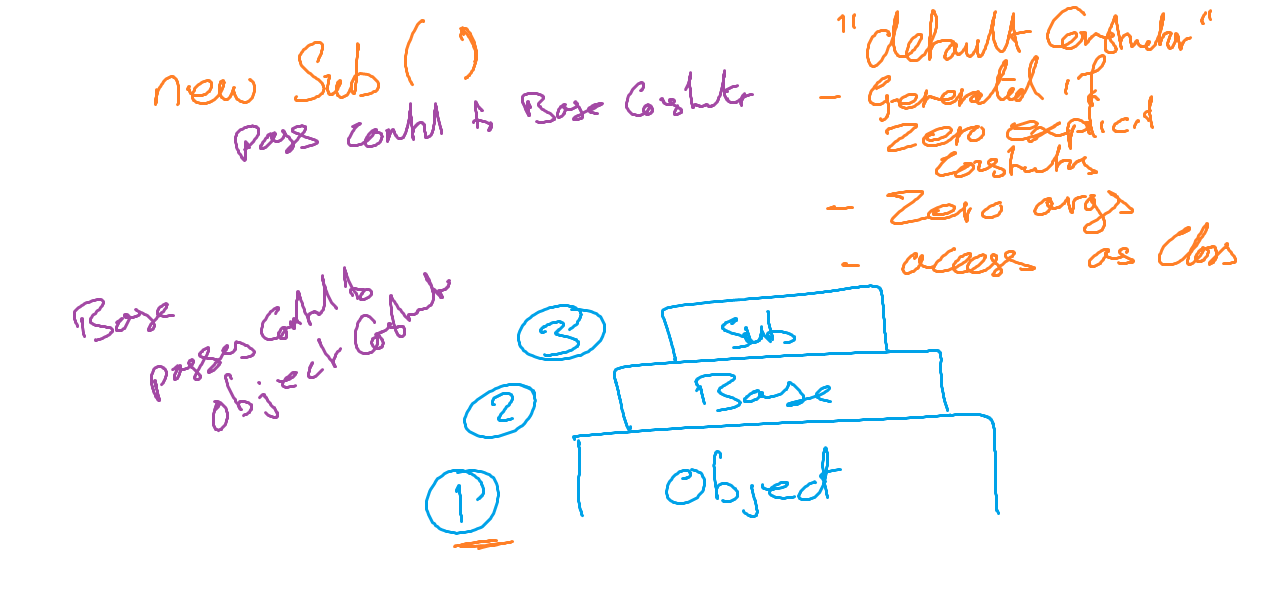 new Sub ( )
pass contrl to Base Constuctr
"default Constructor"
- Generated if
Zero explicit
Constuctrs
- Zero args
- access as Class
Base
passes Contrl to
object Constuctr
3 Sub
2 Base
1 Object